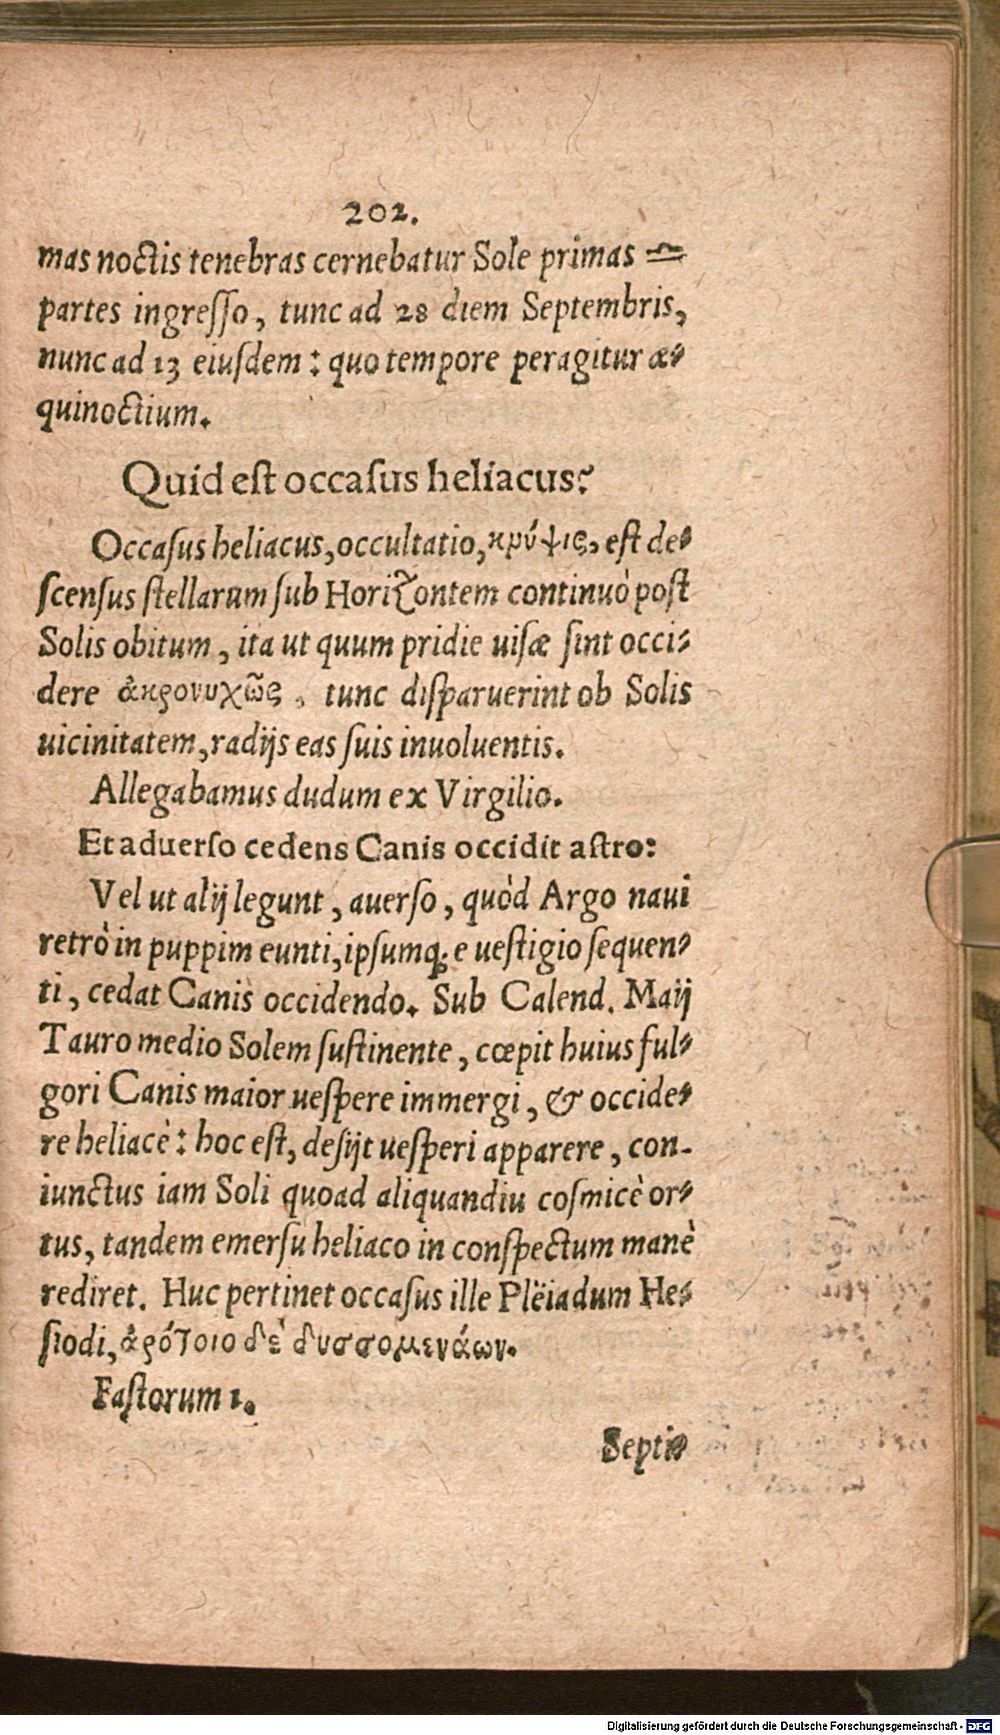 202.
mas noctis tenebras cernebatur Sole primas ♎
partes ingreſſo, tunc ad 28 diem Septembris,
nunc ad 13 eiuſdem: quo tempore peragitur æ-
quinoctium.
Quid eſt occaſus heliacus?
Occaſus heliacus, occultatio, κρύψις, eſt de-
ſcenſus ſtellarum ſub Horizontem continuò poſt
Solis obitum, ita ut quum pridie uiſæ ſint occi-
dere ἀκρονυχῶς, tunc diſparuerint ob Solis
uicinitatem, radijs eas ſuis inuoluentis.
Allegabamus dudum ex Virgilio.
Et aduerſo cedens Canis occidit aſtro:
Vel ut alij legunt, auerſo, quòd Argo naui
retrò in puppim eunti, ipſumq; e ueſtigio ſequen-
ti, cedat Canis occidendo. Sub Calend. Maij
Tauro medio Solem ſuſtinente, cœpit huius ful-
gori Canis maior ueſpere immergi, & occide-
re heliacè: hoc eſt, deſijt ueſperi apparere, con-
iunctus iam Soli quoad aliquandiu coſmicè or-
tus, tandem emerſu heliaco in conſpectum manè
rediret. Huc pertinet occaſus ille Plëiadum He-
ſiodi, ἀρότοιο δὲ δυσσομενάων.
Faſtorum 1.
Septi-
Digitalisierung gefördert durch die Deutsche Forschungsgemeinschaft - DFG